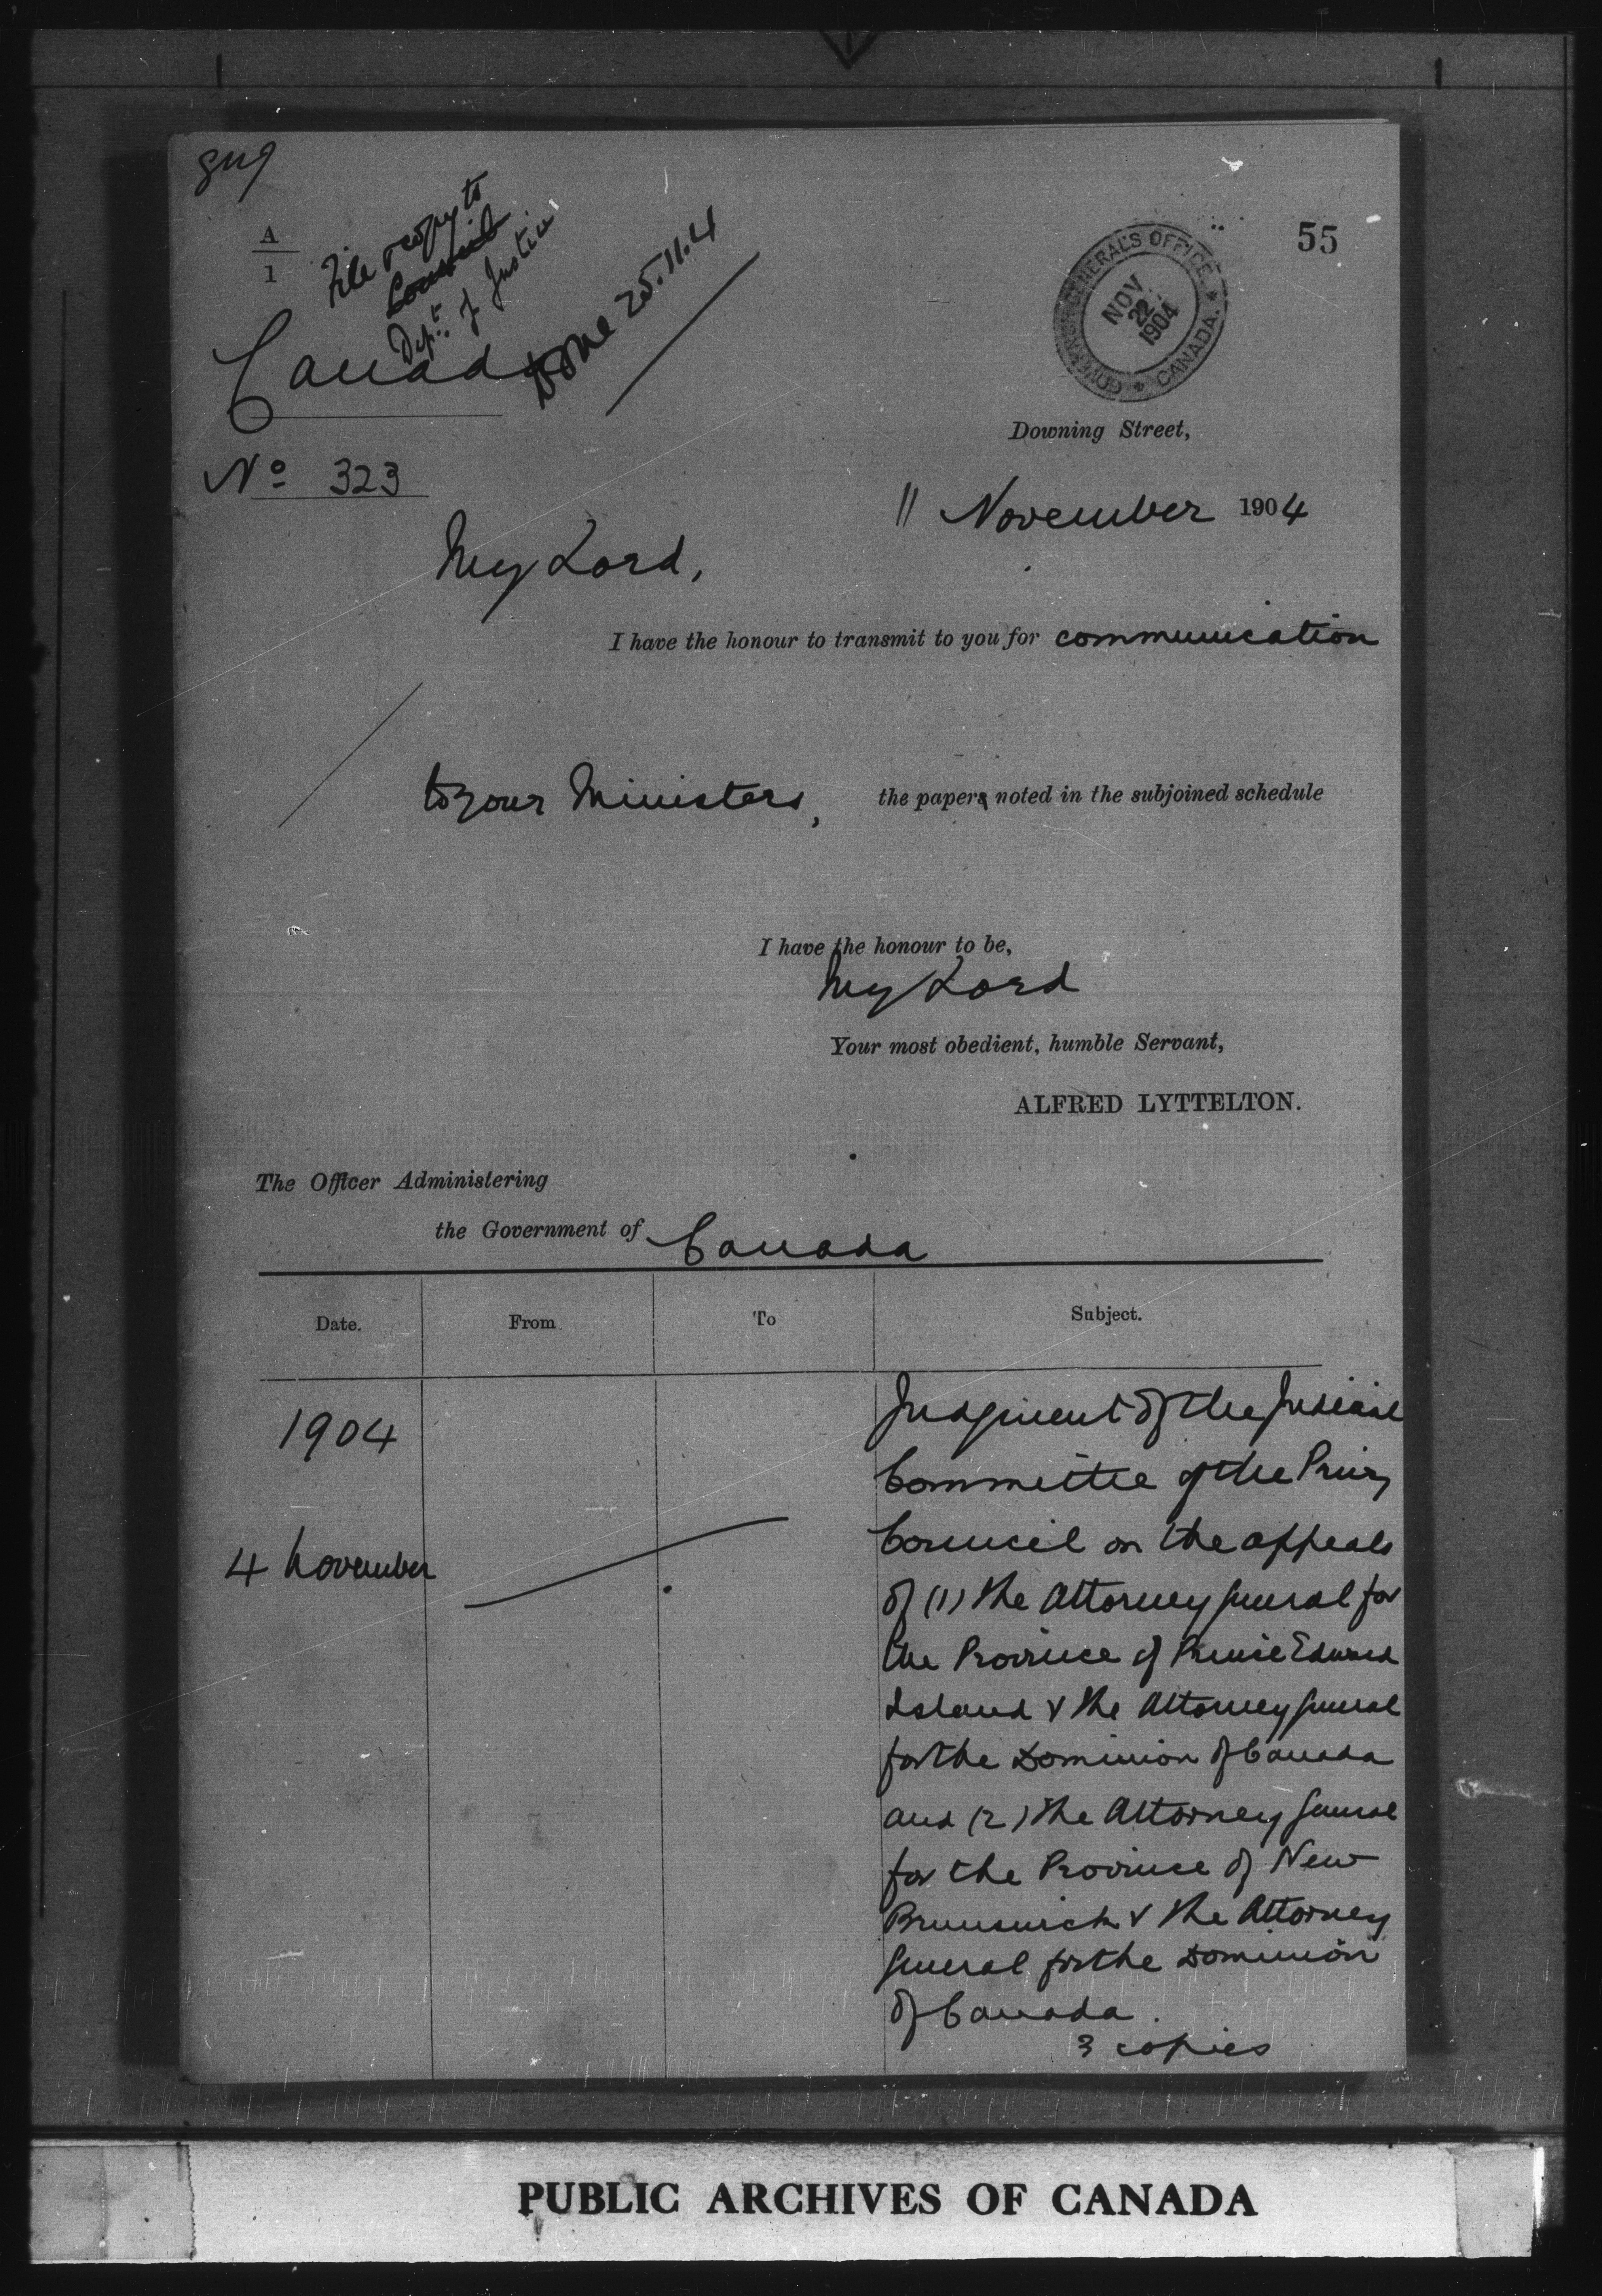 A
1
File & copy to
Council
Dept. of Justice
Done 25.11.4
Canada
GOVERNOR GENERAL'S OFFICE
CANADA.
NOV.
22
1904
55
Downing Street,
No 323
11 November 1904
My Lord,
I have the honour to transmit to you for communication
to your Ministers, the papers noted in the subjoined schedule
I have the honour to be,
My Lord
Your most obedient, humble Servant,
ALFRED LYTTELTON.
The Officer Administering
the Government of Canada
Date. From To Subject.
1904
4 November
Judgment of the Judicial
Committee of the Privy
Council on the appeals
of (1) the Attorney General for
the Province of Prince Edward
Island & the Attorney General
for the Dominion of Canada
and (2) the Attorney General
for the Province of New
Brunswick & the Attorney
General for the Dominion
of Canada.
3 copies
PUBLIC ARCHIVES OF CANADA